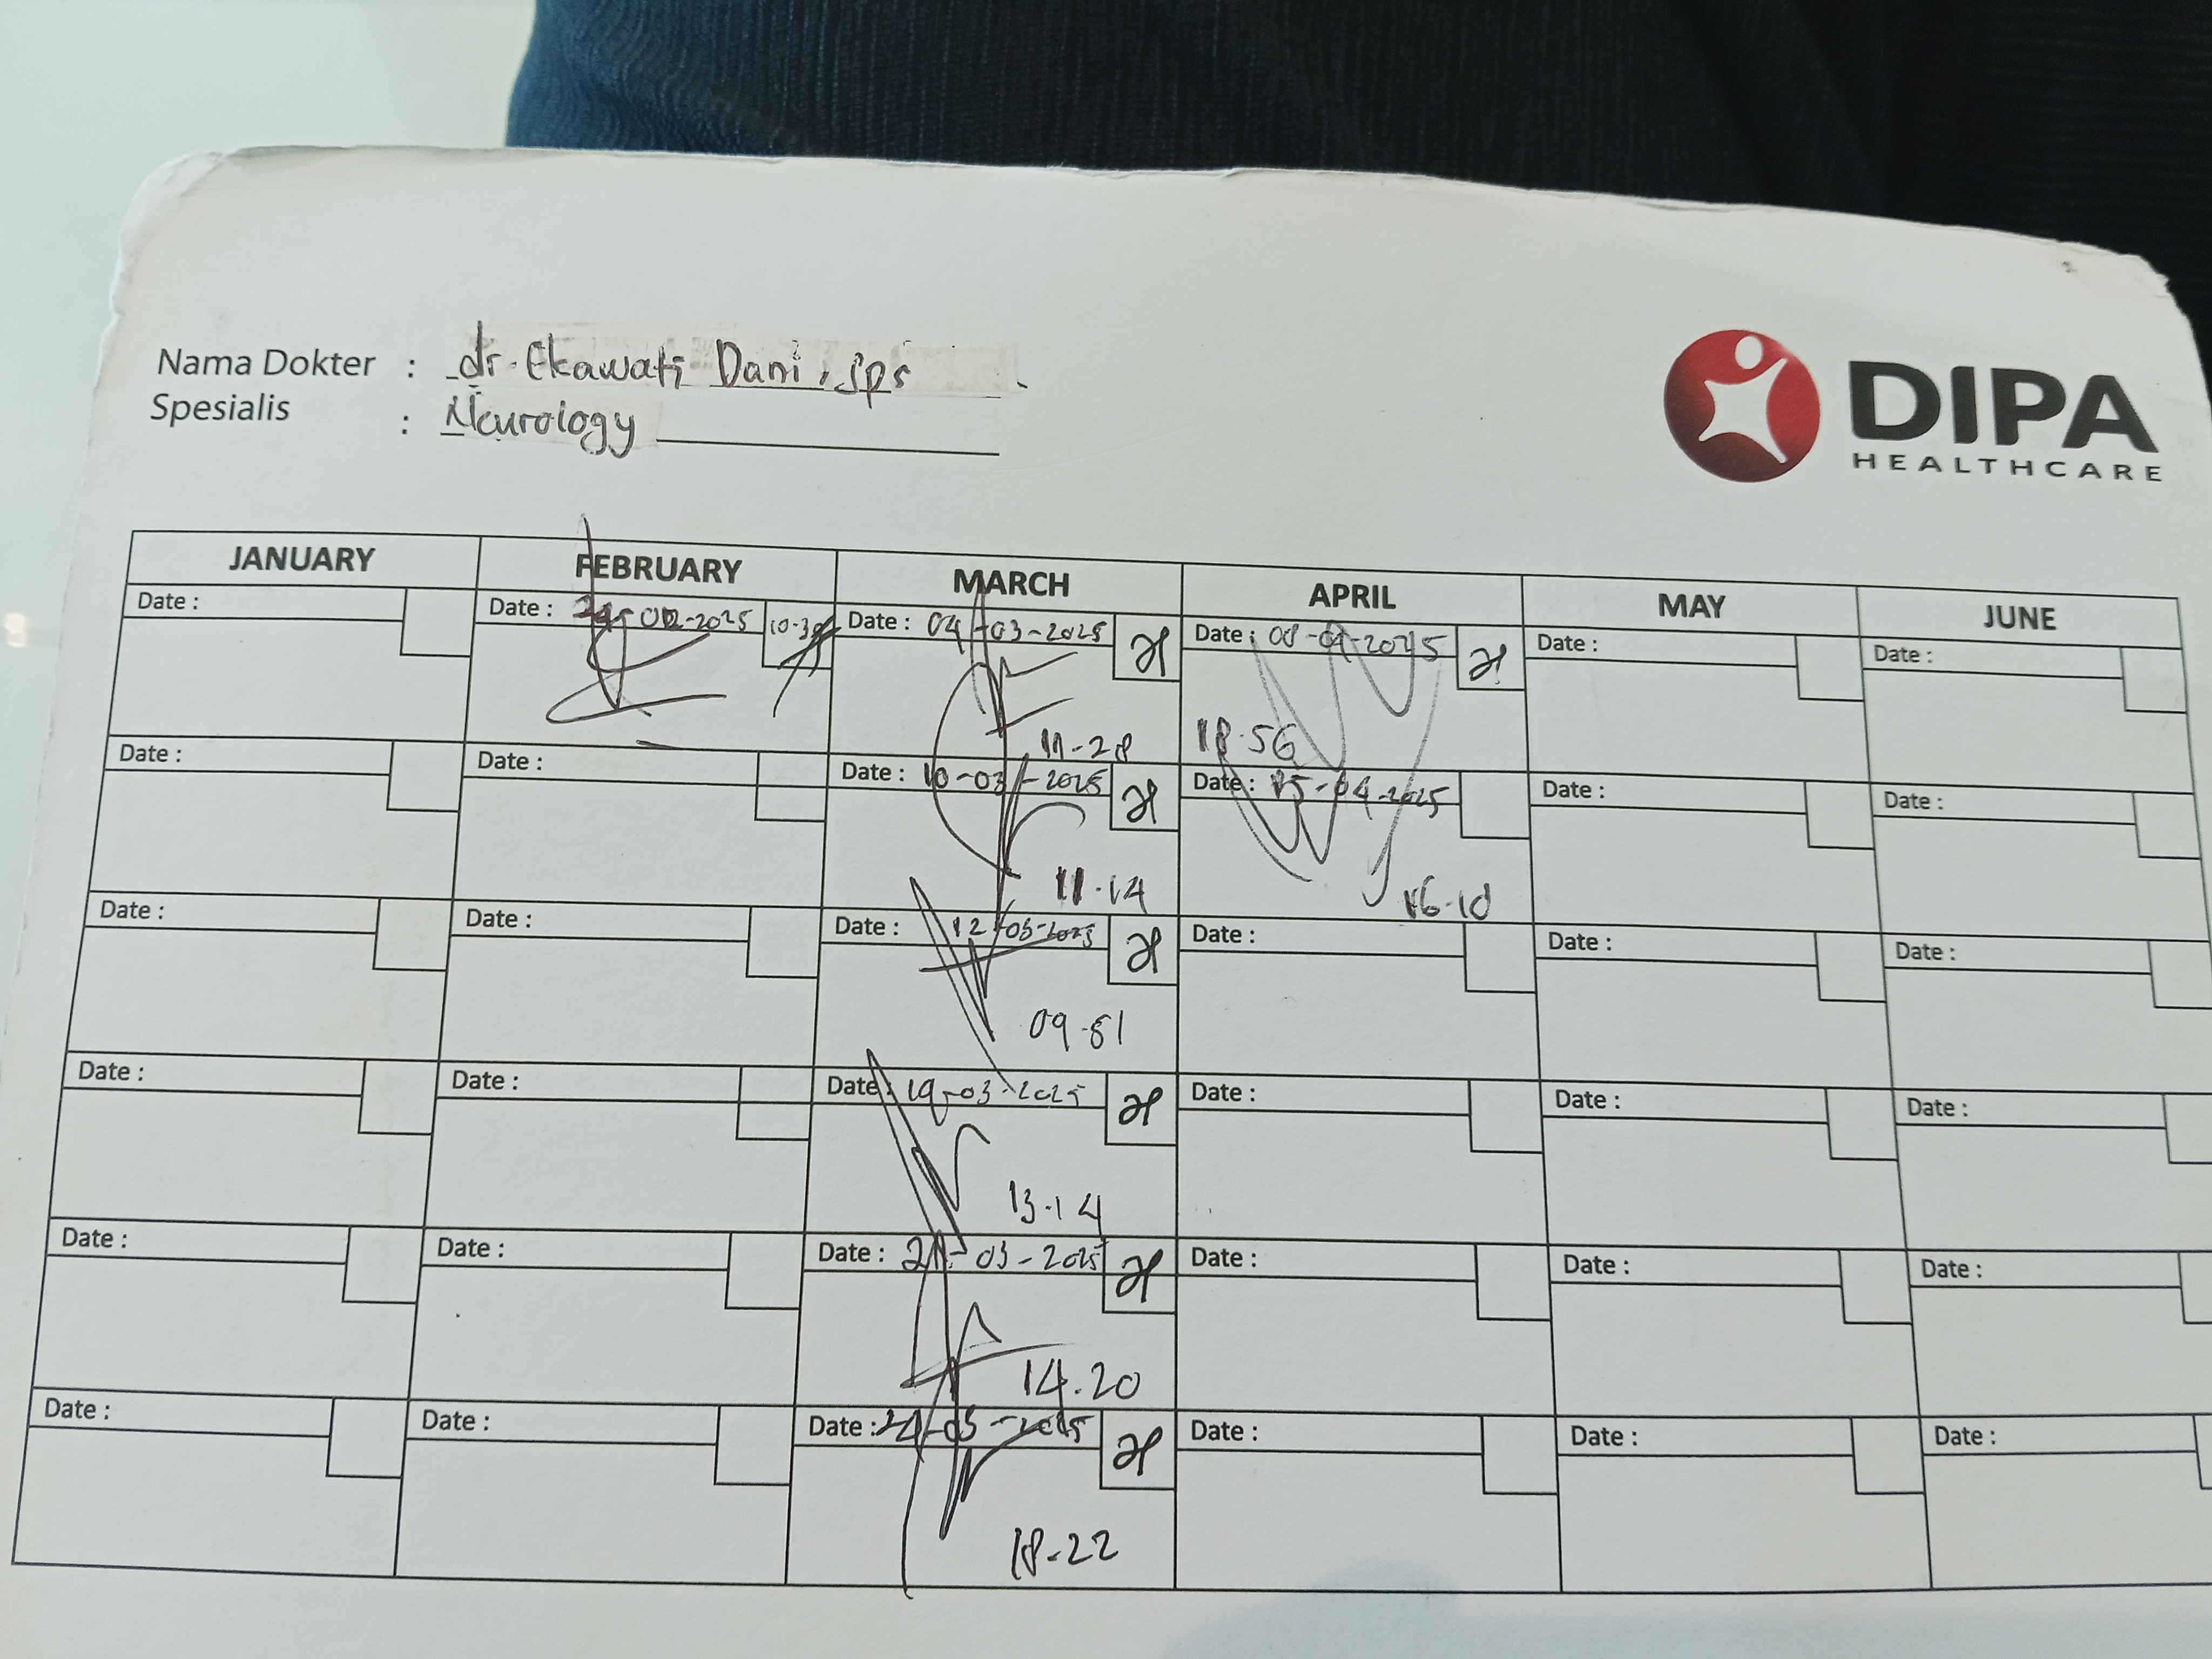 Nama Dokter : dr. Ekawati Dani, Sps
Spesialis : Neurology
DIPA
HEALTHCARE
JANUARY FEBRUARY MARCH APRIL MAY JUNE
Date : Date : -2025 Date : 04-03-2025 Date : 08-04-2025 Date : Date :
11-28 18.56
Date : Date : Date : 10-03-2025 Date : 15-04-2025 Date : Date :
11.14 16.10
Date : Date : Date : 12-03-2025 Date : Date : Date :
09.51
Date : Date : Date : 19-03-2025 Date : Date : Date :
13.14
Date : Date : Date : 21-03-2025 Date : Date : Date :
14.20
Date : Date : Date : -03-2025 Date : Date : Date :
18-22